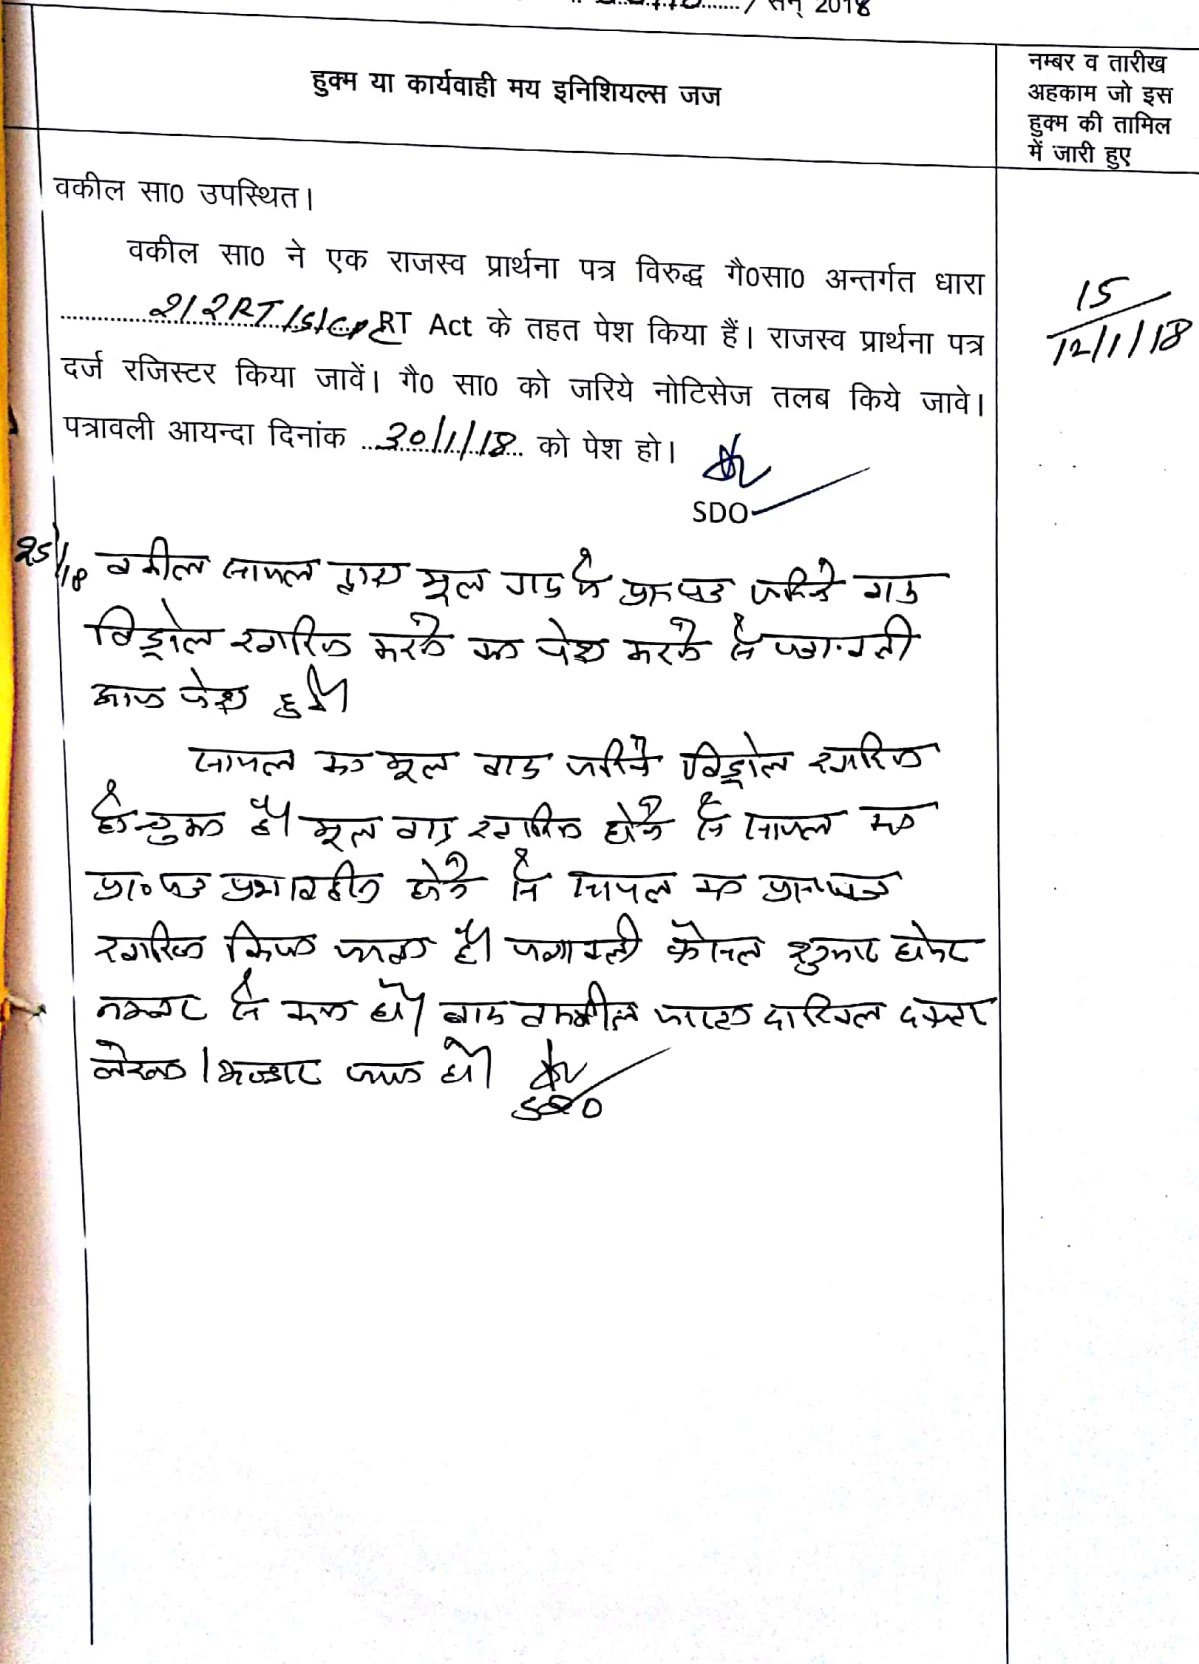 / सन् 2018
हुक्म या कार्यवाही मय इनिशियल्स जज
नम्बर व तारीख
अहकाम जो इस
हुक्म की तामिल
में जारी हुए
वकील सा0 उपस्थित।
वकील सा0 ने एक राजस्व प्रार्थना पत्र विरुद्ध गै0सा0 अन्तर्गत धारा
212 RT RT Act के तहत पेश किया हैं। राजस्व प्रार्थना पत्र
दर्ज रजिस्टर किया जावें। गै0 सा0 को जरिये नोटिसेज तलब किये जावे।
पत्रावली आयन्दा दिनांक 30/1/18 को पेश हो।
SDO
15
12/1/18
वकील सायल द्वारा मूल वाद में जरिये वाद
विड्रोल खारिज करने का पेश करने से पत्रावली
आज पेश हुई।
सायल का मूल वाद जरिये विड्रोल खारिज
हो चुका है। मूल वाद खारिज होने से सायल का
प्रा०पत्र प्रभावहीन होने से सायल का
खारिज किया जाता है। पत्रावली फैसल शुमार होकर
नम्बर से कम हो। बाद तकमील दाखिल दफ्तर
हो।
SDO